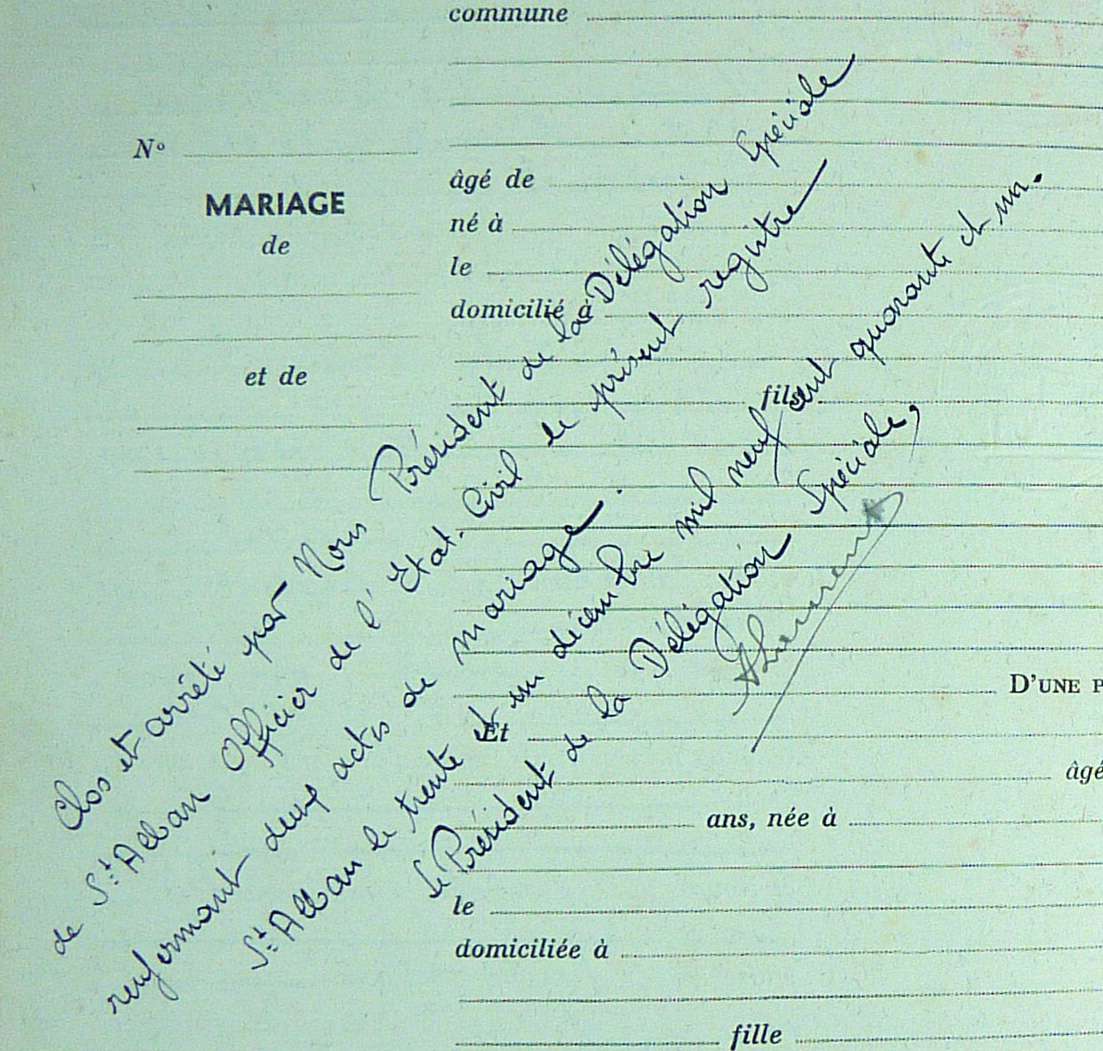 commune
Nº
MARIAGE
de
et de
âgé de
né à
le
domicilié à
fils
D'UNE P
Et
âgé
ans, née à
le
domiciliée à
fille
Clos et arrêté par Nous Président de la Délégation Spéciale
de St Alban Officier de l'État-Civil le présent registre
renfermant deux actes de mariage.
St Alban le trente et un décembre mil neuf cent quarante et un.
Le Président de la Délégation Spéciale,